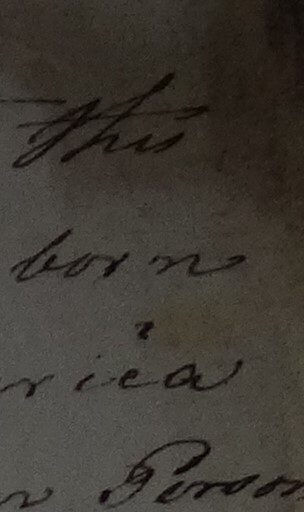 this
born
rica
n Person